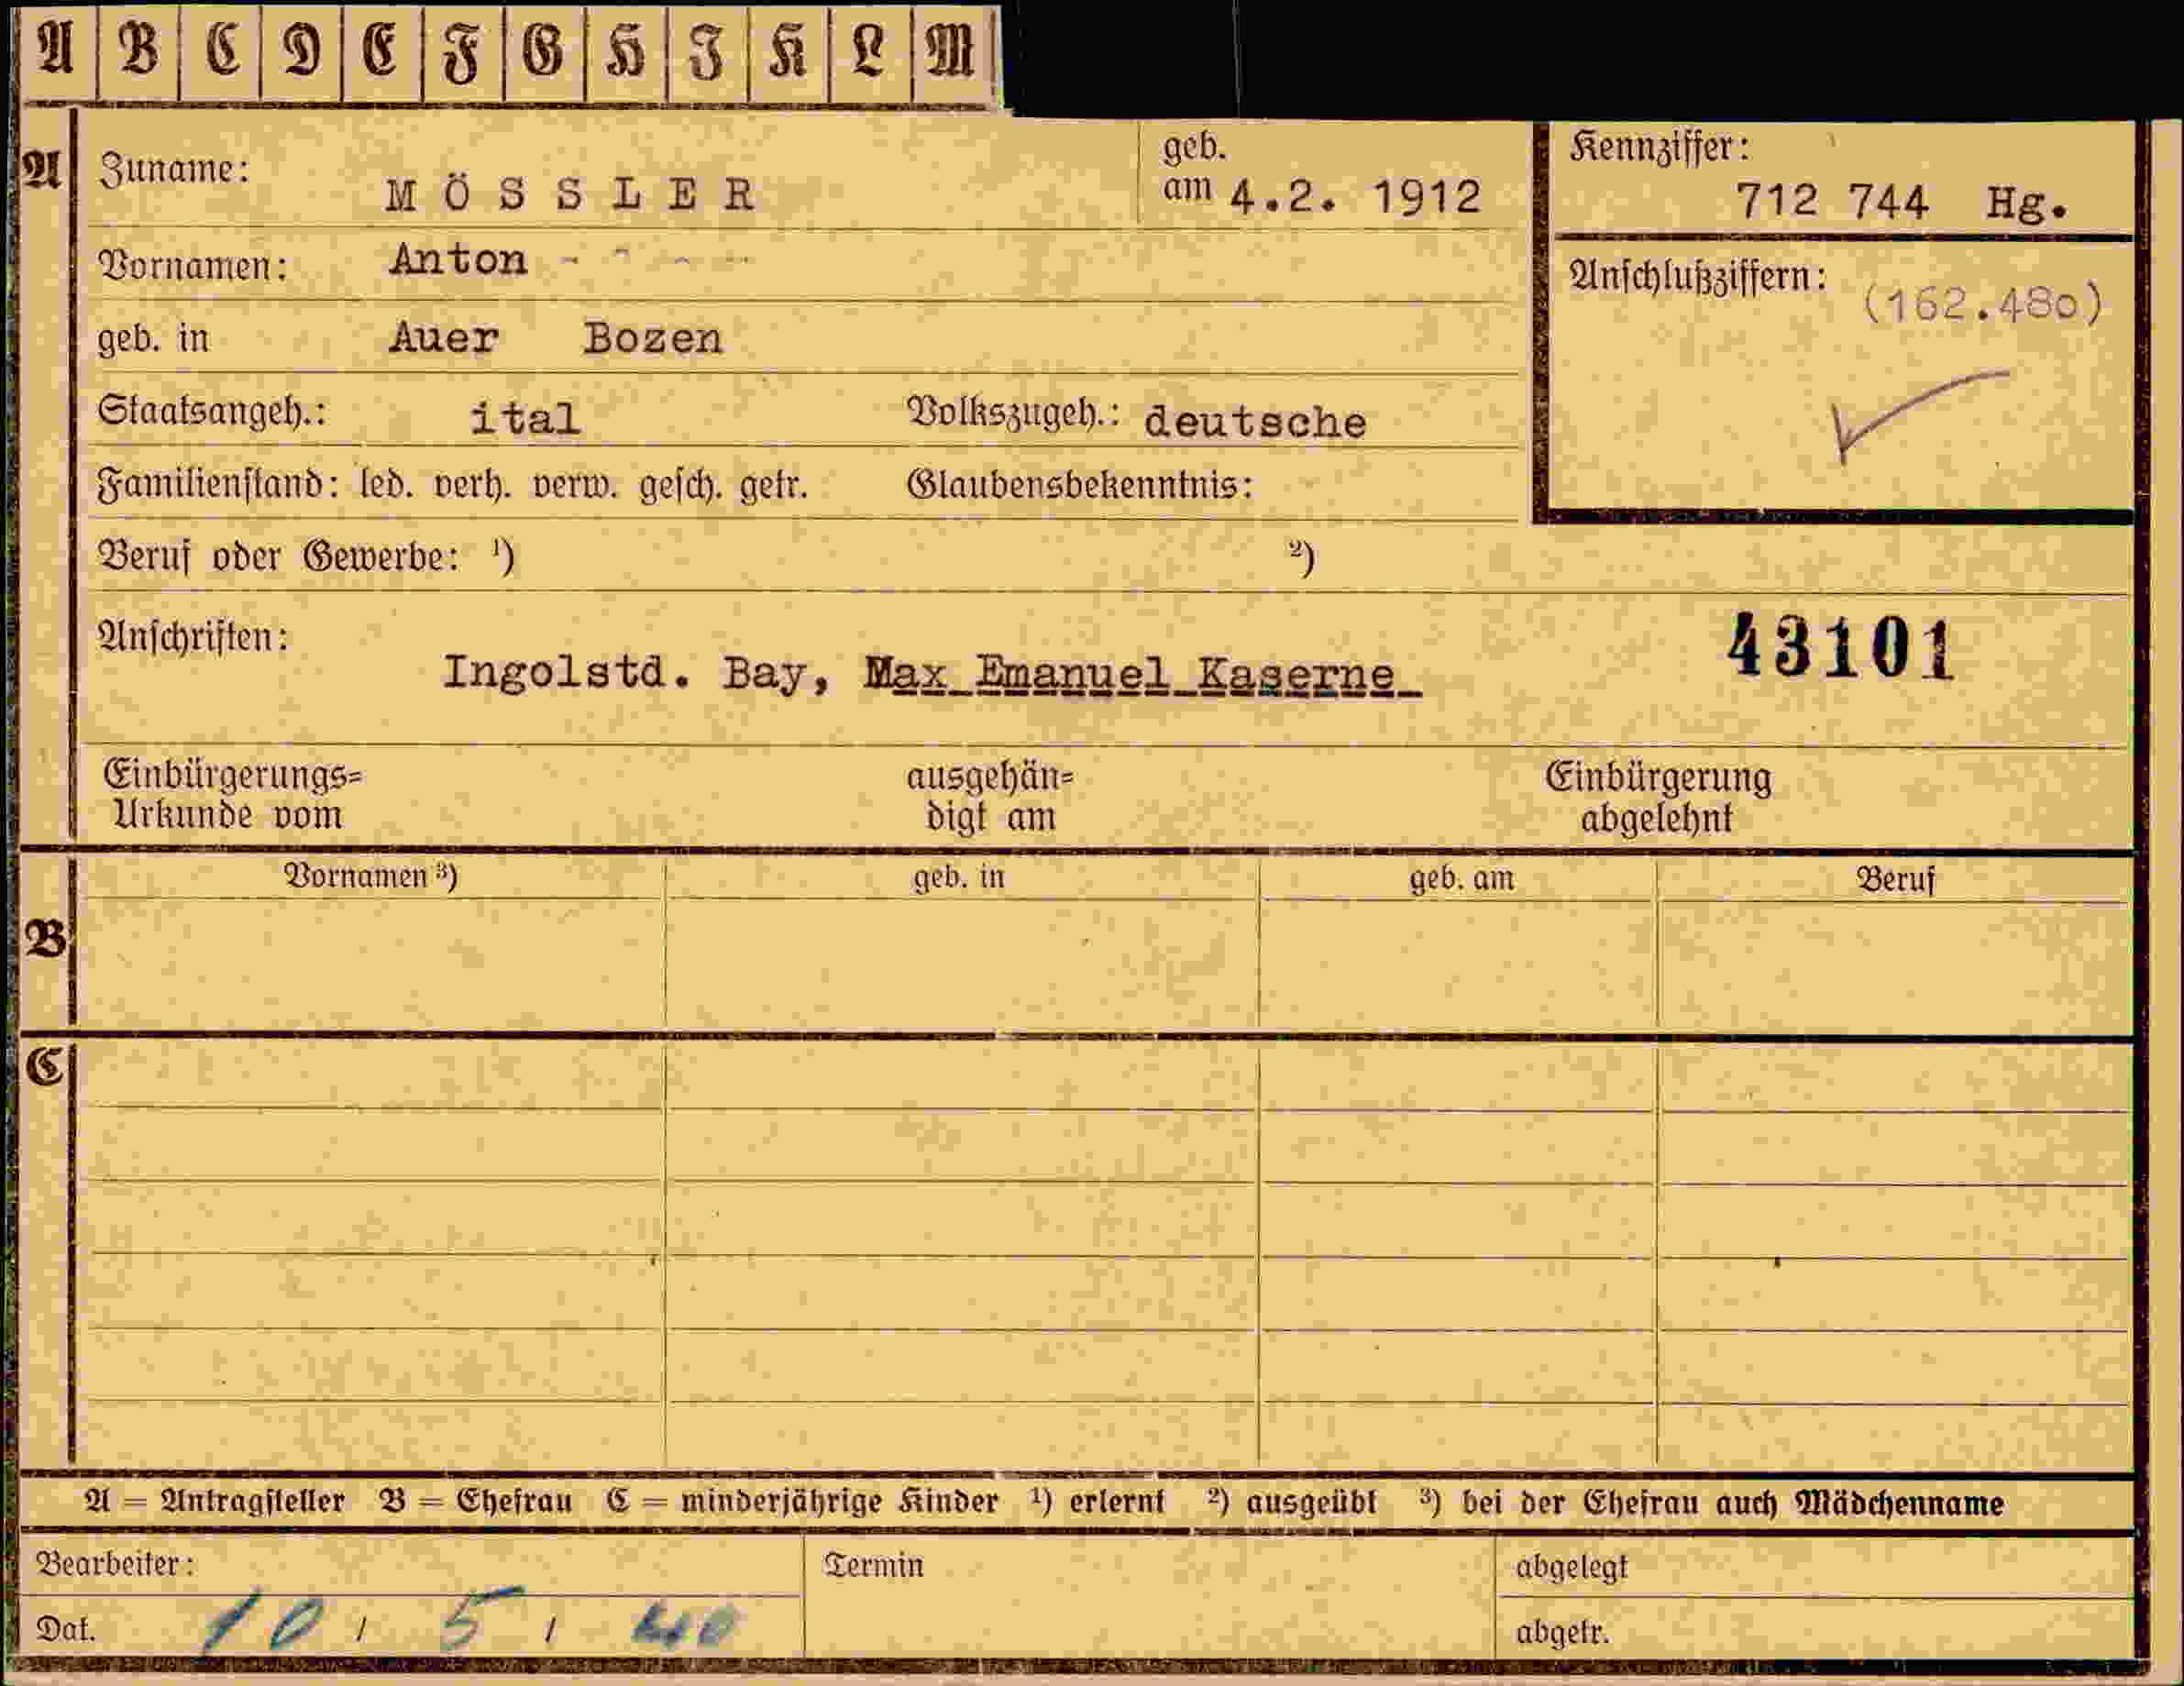 A B C D E F G H I K L M
A
Zuname: MÖSSLER
geb. am 4.2. 1912
Kennziffer:
712 744 Hg.
Vornamen: Anton - - - -
Anschlußziffern: (162.480)
geb. in Auer Bozen
Staatsangeh.: ital Volkszugeh.: deutsche
Familienstand: led. verh. verw. gesch. getr. Glaubensbekenntnis:
Beruf oder Gewerbe: ¹) ²)
Anschriften:
Ingolstd. Bay, Max Emanuel Kaserne
43101
Einbürgerungs= ausgehän= Einbürgerung
Urkunde vom digt am abgelehnt
Vornamen ³) geb. in geb. am Beruf
B
C
A = Antragsteller B = Ehefrau C = minderjährige Kinder ¹) erlernt ²) ausgeübt ³) bei der Ehefrau auch Mädchenname
Bearbeiter: Termin abgelegt
Dat. 10 / 5 / 40 abgetr.